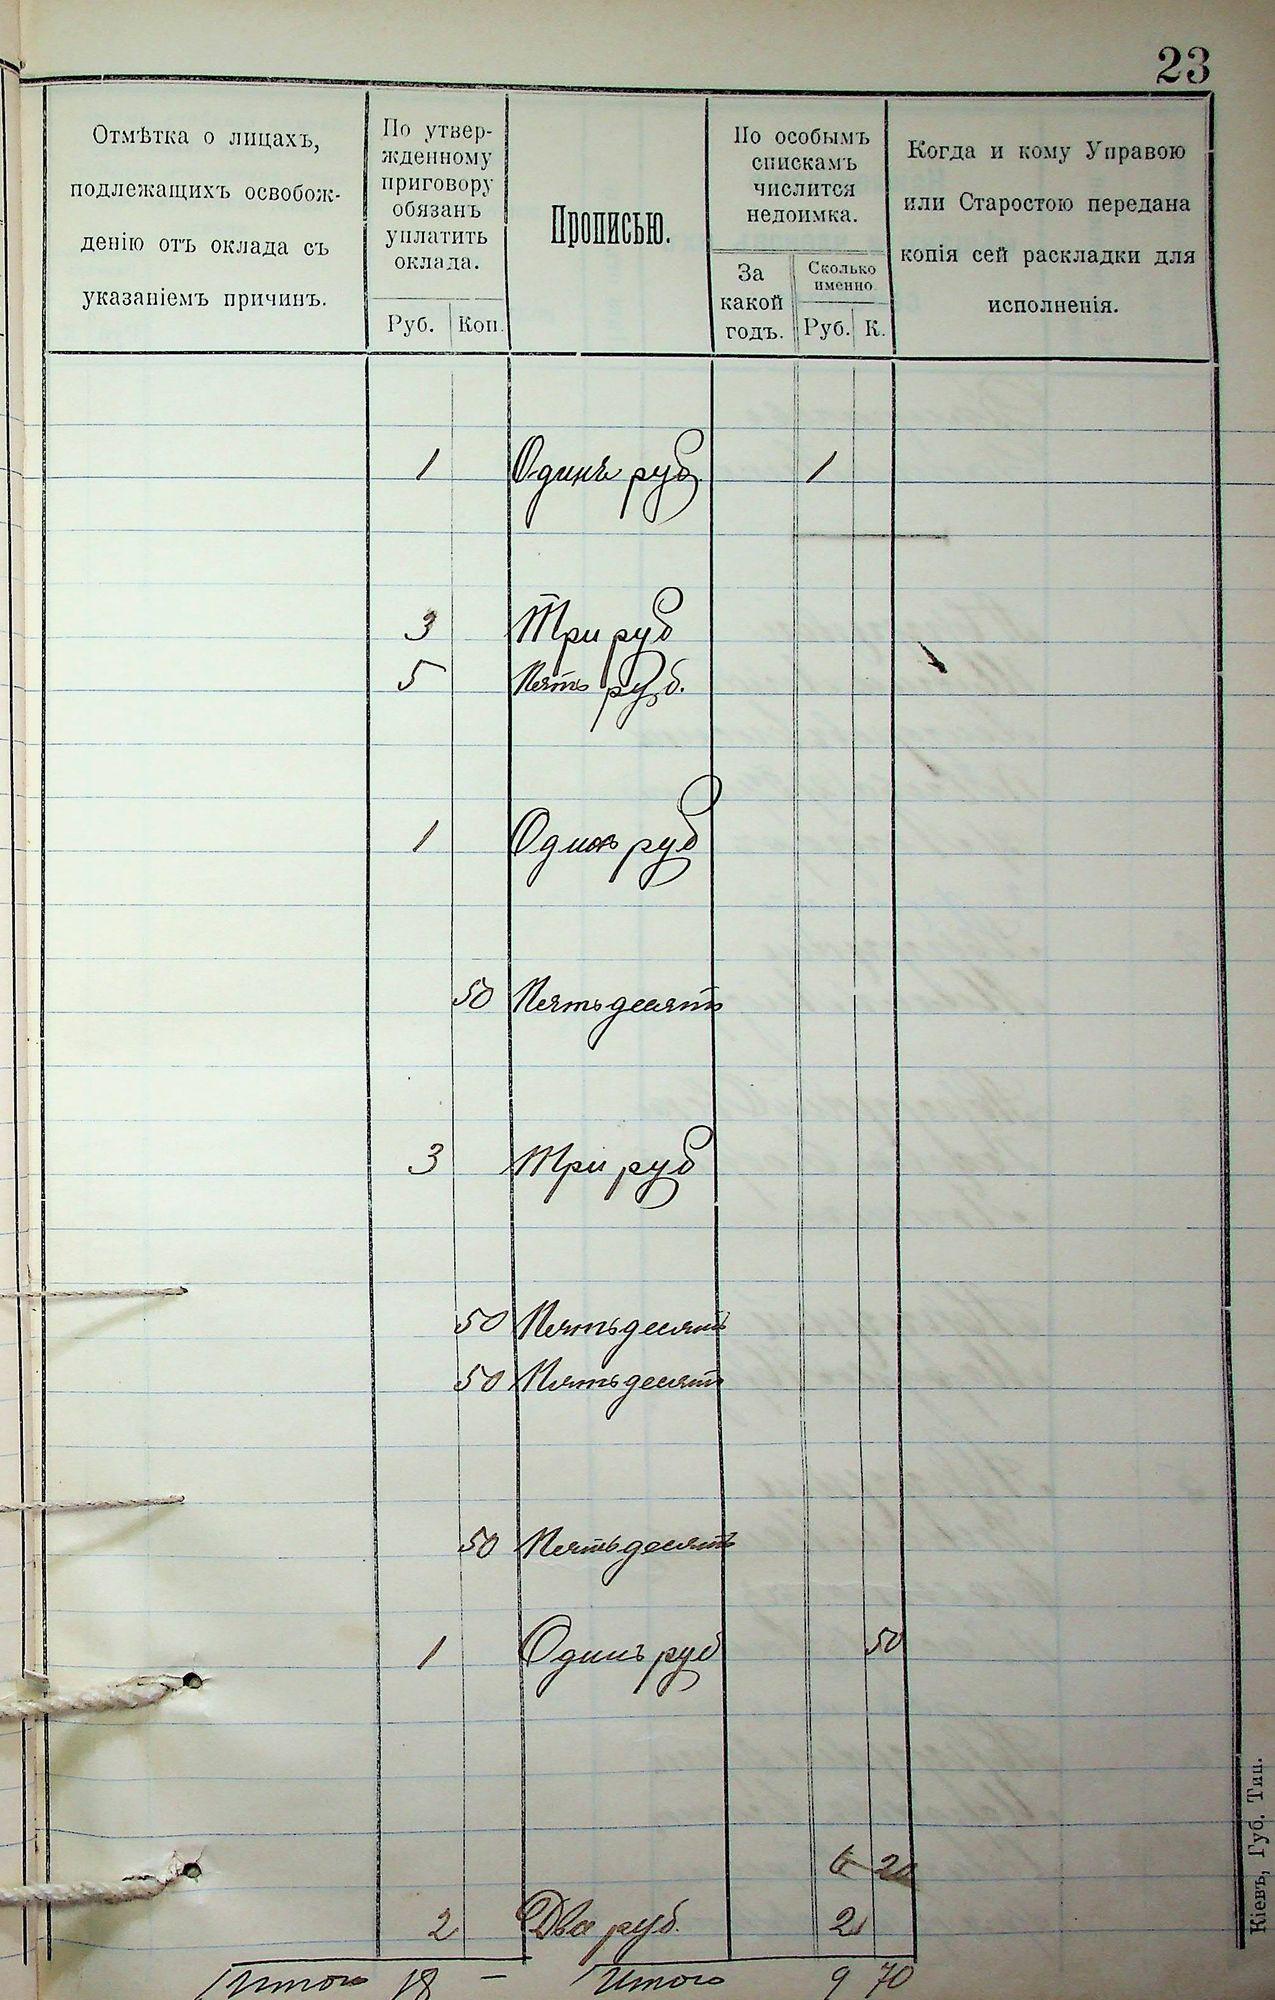 23
Отмѣтка о лицахъ,
подлежащихъ освобож-
денію отъ оклада съ
указаніемъ причинъ.
По утвер-
жденному
приговору
обязанъ
уплатить
оклада.
Руб. Коп.
Прописью.
По особымъ
спискамъ
числится
недоимка.
За
какой
годъ.
Сколько
именно
Руб. К.
Когда и кому Управою
или Старостою передана
копія сей раскладки для
исполненія.
1 Одинъ руб 1
3 Три руб
5 Пять руб.
1 Одинъ руб
50 Пятьдесятъ
3 Три руб
50 Пятьдесятъ
50 Пятьдесятъ
50 Пятьдесятъ
1 Одинъ руб 50
6 20
2 Два руб. 2
Итого 18 — Итого 9 70
Кіевъ, Губ. Тип.